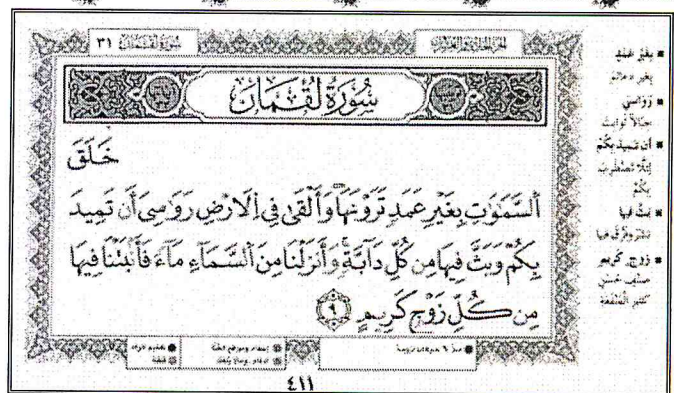 سُورَةُ لُقْمَانَ ٣١
سُورَةُ لُقْمَانَ
خَلَقَ
ٱلسَّمَٰوَٰتِ بِغَيْرِ عَمَدٍ تَرَوْنَهَا وَأَلْقَىٰ فِى ٱلَارْضِ رَوَٰسِىَ أَن تَمِيدَ
بِكُمْ وَبَثَّ فِيهَا مِن كُلِّ دَآبَّةٍ وَأَنزَلْنَا مِنَ ٱلسَّمَآءِ مَآءً فَأَنۢبَتْنَا فِيهَا
مِن كُلِّ زَوْجٍ كَرِيمٍ ٩
بغَيْرِ عَمَدٍ
بغير دعائم
رَوَاسِيَ
جبالاً ثوابت
أن تميد بكُمْ
لِئَلَّا تَضْطَرِبَ
بِكُمْ
بَثَّ فيها
زَوْجٍ كريم
صنف حَسَن
كثير المنفعة
٤١١